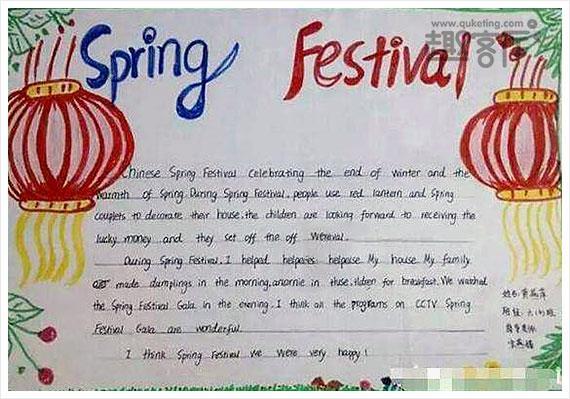 www.quketing.com
趣客行
Spring Festival
Chinese Spring Festival Celebrating the end of winter and the
Warmth of Spring During Spring Festival, people use red lantern and Spring
Couplets to decorate their house, the children are looking forward to receiving the
lucky money and they set off the off
During Spring Festival, I helped helpaires helpaise My house My family
made dumplings in the morning, anornie in thse, ildren for breakfast. We watched
the Spring Festival Gala in the evening. I think all the programs on CCTV Spring
Festival Gala are wonderful.
I think Spring Festival we were very happy!
姓名:
班级: